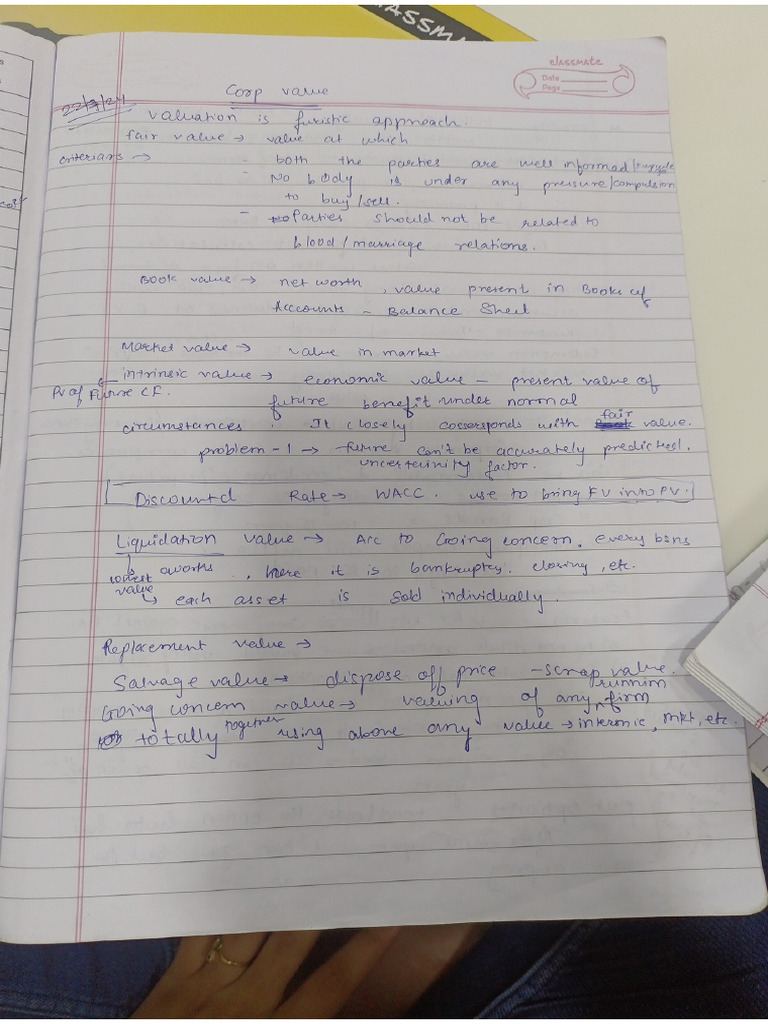 CLASSMA
classmate
Date
Page
Corp value
22/7/24
Valuation is furistic approach.
fair value → value at which
criterians → - both the parties are well informed/
- No body is under any pressure/compulsion
to buy/sell.
- Parties should not be related to
blood/marriage relations.
Book value → net worth, value present in Books of
Accounts - Balance Sheet
Market value → value in market
intrinsic value → economic value - present value of
PV of Future CF.
future benefit under normal
circumstances. It closely cosserponds with fair value.
problem - 1 → future can't be accurately predicted.
uncertinity factor.
Discountd Rate → WACC. use to bring FV into PV.
Liquidation value → Acc to Going concern, every bsns
lowest value
aworks, here it is bankruptcy, closing, etc.
↳ each asset is sold individually.
Replacement value →
Salvage value → dispose off price - scrap value.
Going concern value → valuing of any running firm
totally together using above any value → intersnic, mkt, etc.